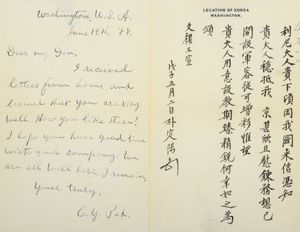 Washington, U.S.A.
June 12th, '88.
My dear Gen,
I received
letters from home and
learned that you are very
well. How you like it
I hope you have good time
with your company. We
are all well here. I remain,
Yours truly,
C. Y. Pak.
LEGATION OF KOREA
WASHINGTON.
利尼大人貴下頃因我國來信憑知
貴大人穩抵我 京甚欣且慰鍊務想已
開設軍容從可增彩惟望
貴大人用意設教期臻精銳何幸如之爲
頌
文禮不宣
戊子五月二日朴定陽